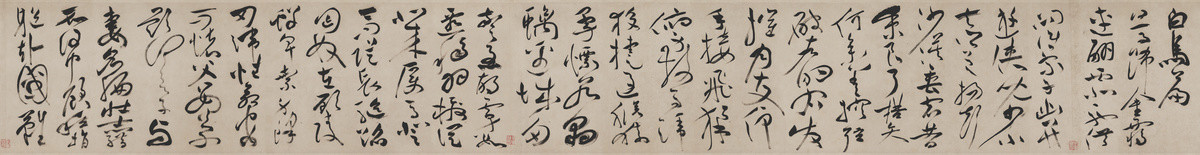 白馬篇
白馬飾金羈
連翩西北馳借
問誰家子幽并
遊俠兒少小
去鄉邑揚聲
沙漠垂宿昔
秉良弓楛矢
何參差控弦
破左的右發
摧月支仰
手接飛猱
俯身散馬蹄
狡捷過猴猿
勇剽若豹
螭邊城多
警急胡虜數
遷移羽檄從
北來厲馬登
高堤長驅蹈
匈奴左顧陵
鮮卑棄身鋒
刃端性命安
可懷父母且
不顧何言子與
妻名編壯士籍
不得中顧私捐
軀赴國難